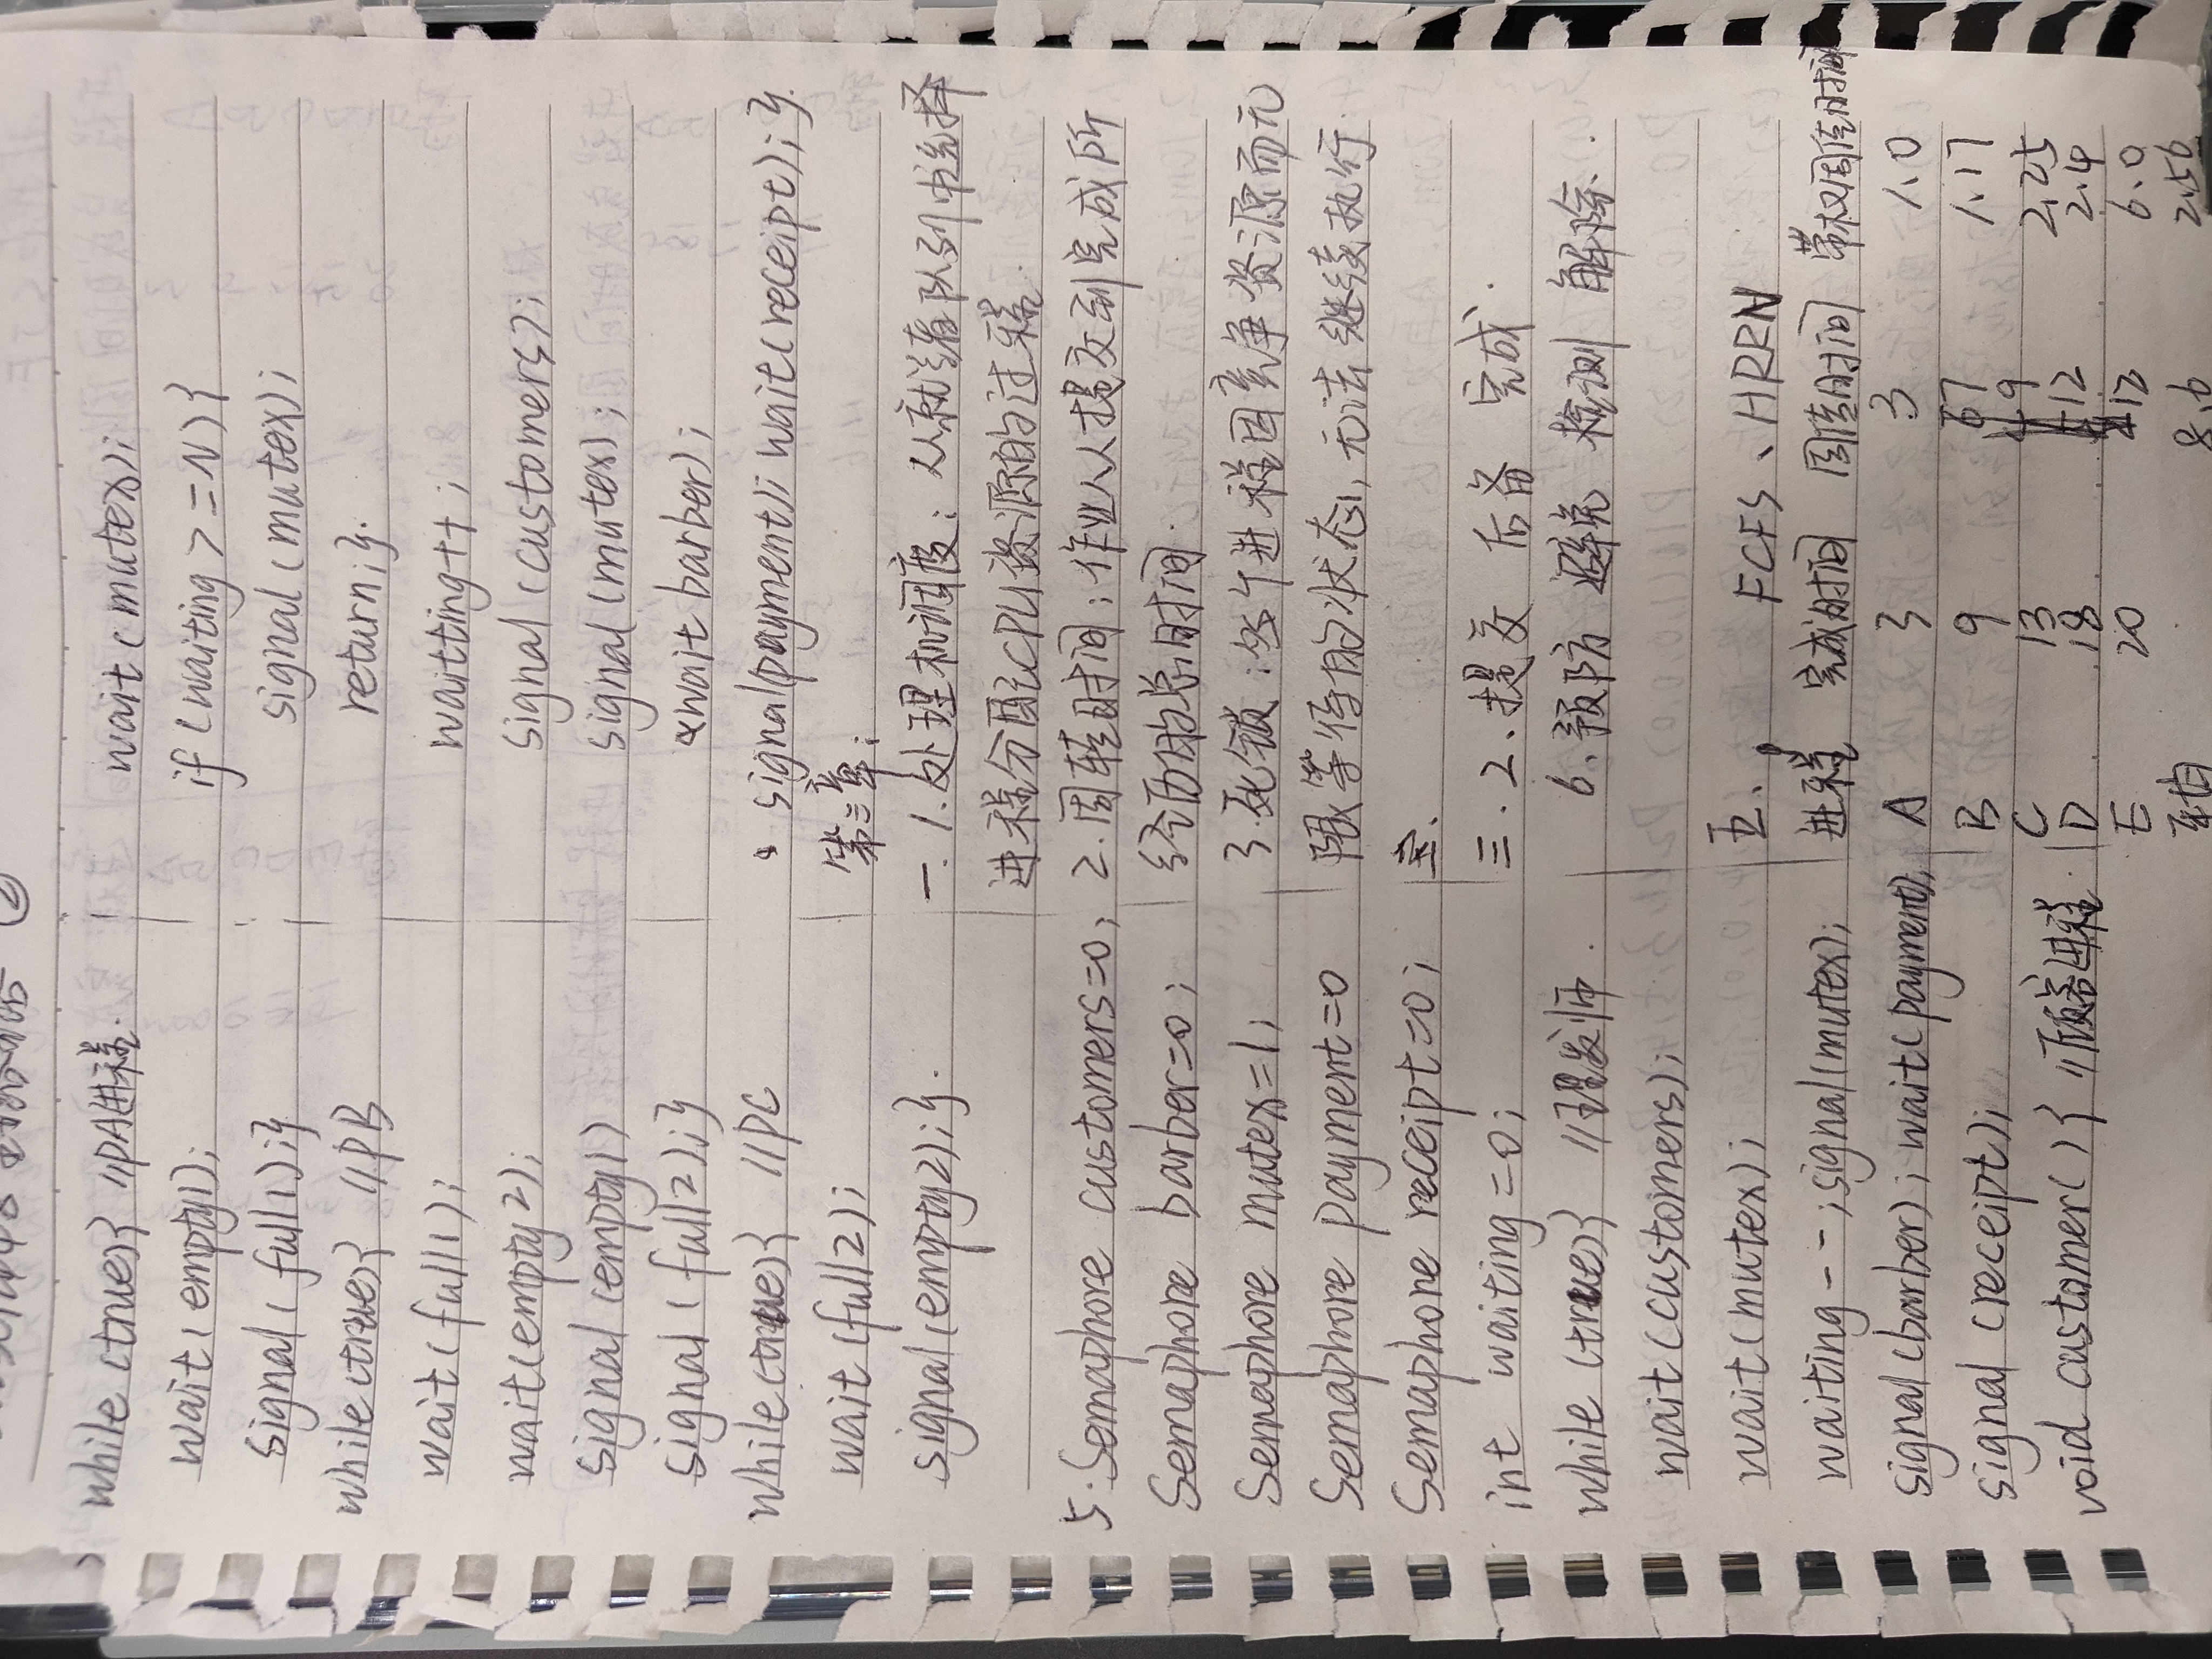 while (true){ //PA进程.
wait(empty1);
signal(full1);}
while(true){ //PB
wait(full1);
wait(empty2);
signal(empty1)
signal(full2);}
while(true){ //PC
wait(full2);
signal(empty2);}.
5.Semaphore customers=0;
Semaphore barber=0;
Semaphore mutex=1;
Semaphore payment=0
Semaphore receipt=0;
int waiting=0;
while (true){ //理发师.
wait(customers);
wait(mutex);
waiting--;signal(mutex);
signal(barber); wait(payment);
signal(receipt);
void customer(){ //顾客进程.
wait(mutex);
if(waiting>=N){
signal(mutex);
return;}.
waitting++;
signal(customers);
signal(mutex);
wait barber);
signal(payment); wait(receipt);}.
第三章:
一.1.处理机调度: 从就绪队列中选择
进程分配CPU资源的过程.
2.周转时间:作业从提交到完成所
经历的总时间.
3.死锁:多个进程因竞争资源而无
限等待的状态,无法继续执行.
三.2、提交 后备 完成.
6、预防 避免 检测 解除.
五、 FCFS、HRRN
进程 完成时间 周转时间 带权周转时间
A 3 3 1.0
B 9 7 1.17
C 13 9 2.25
D 18 12 2.4
E 20 12 6.0
平均 8.6 2.56